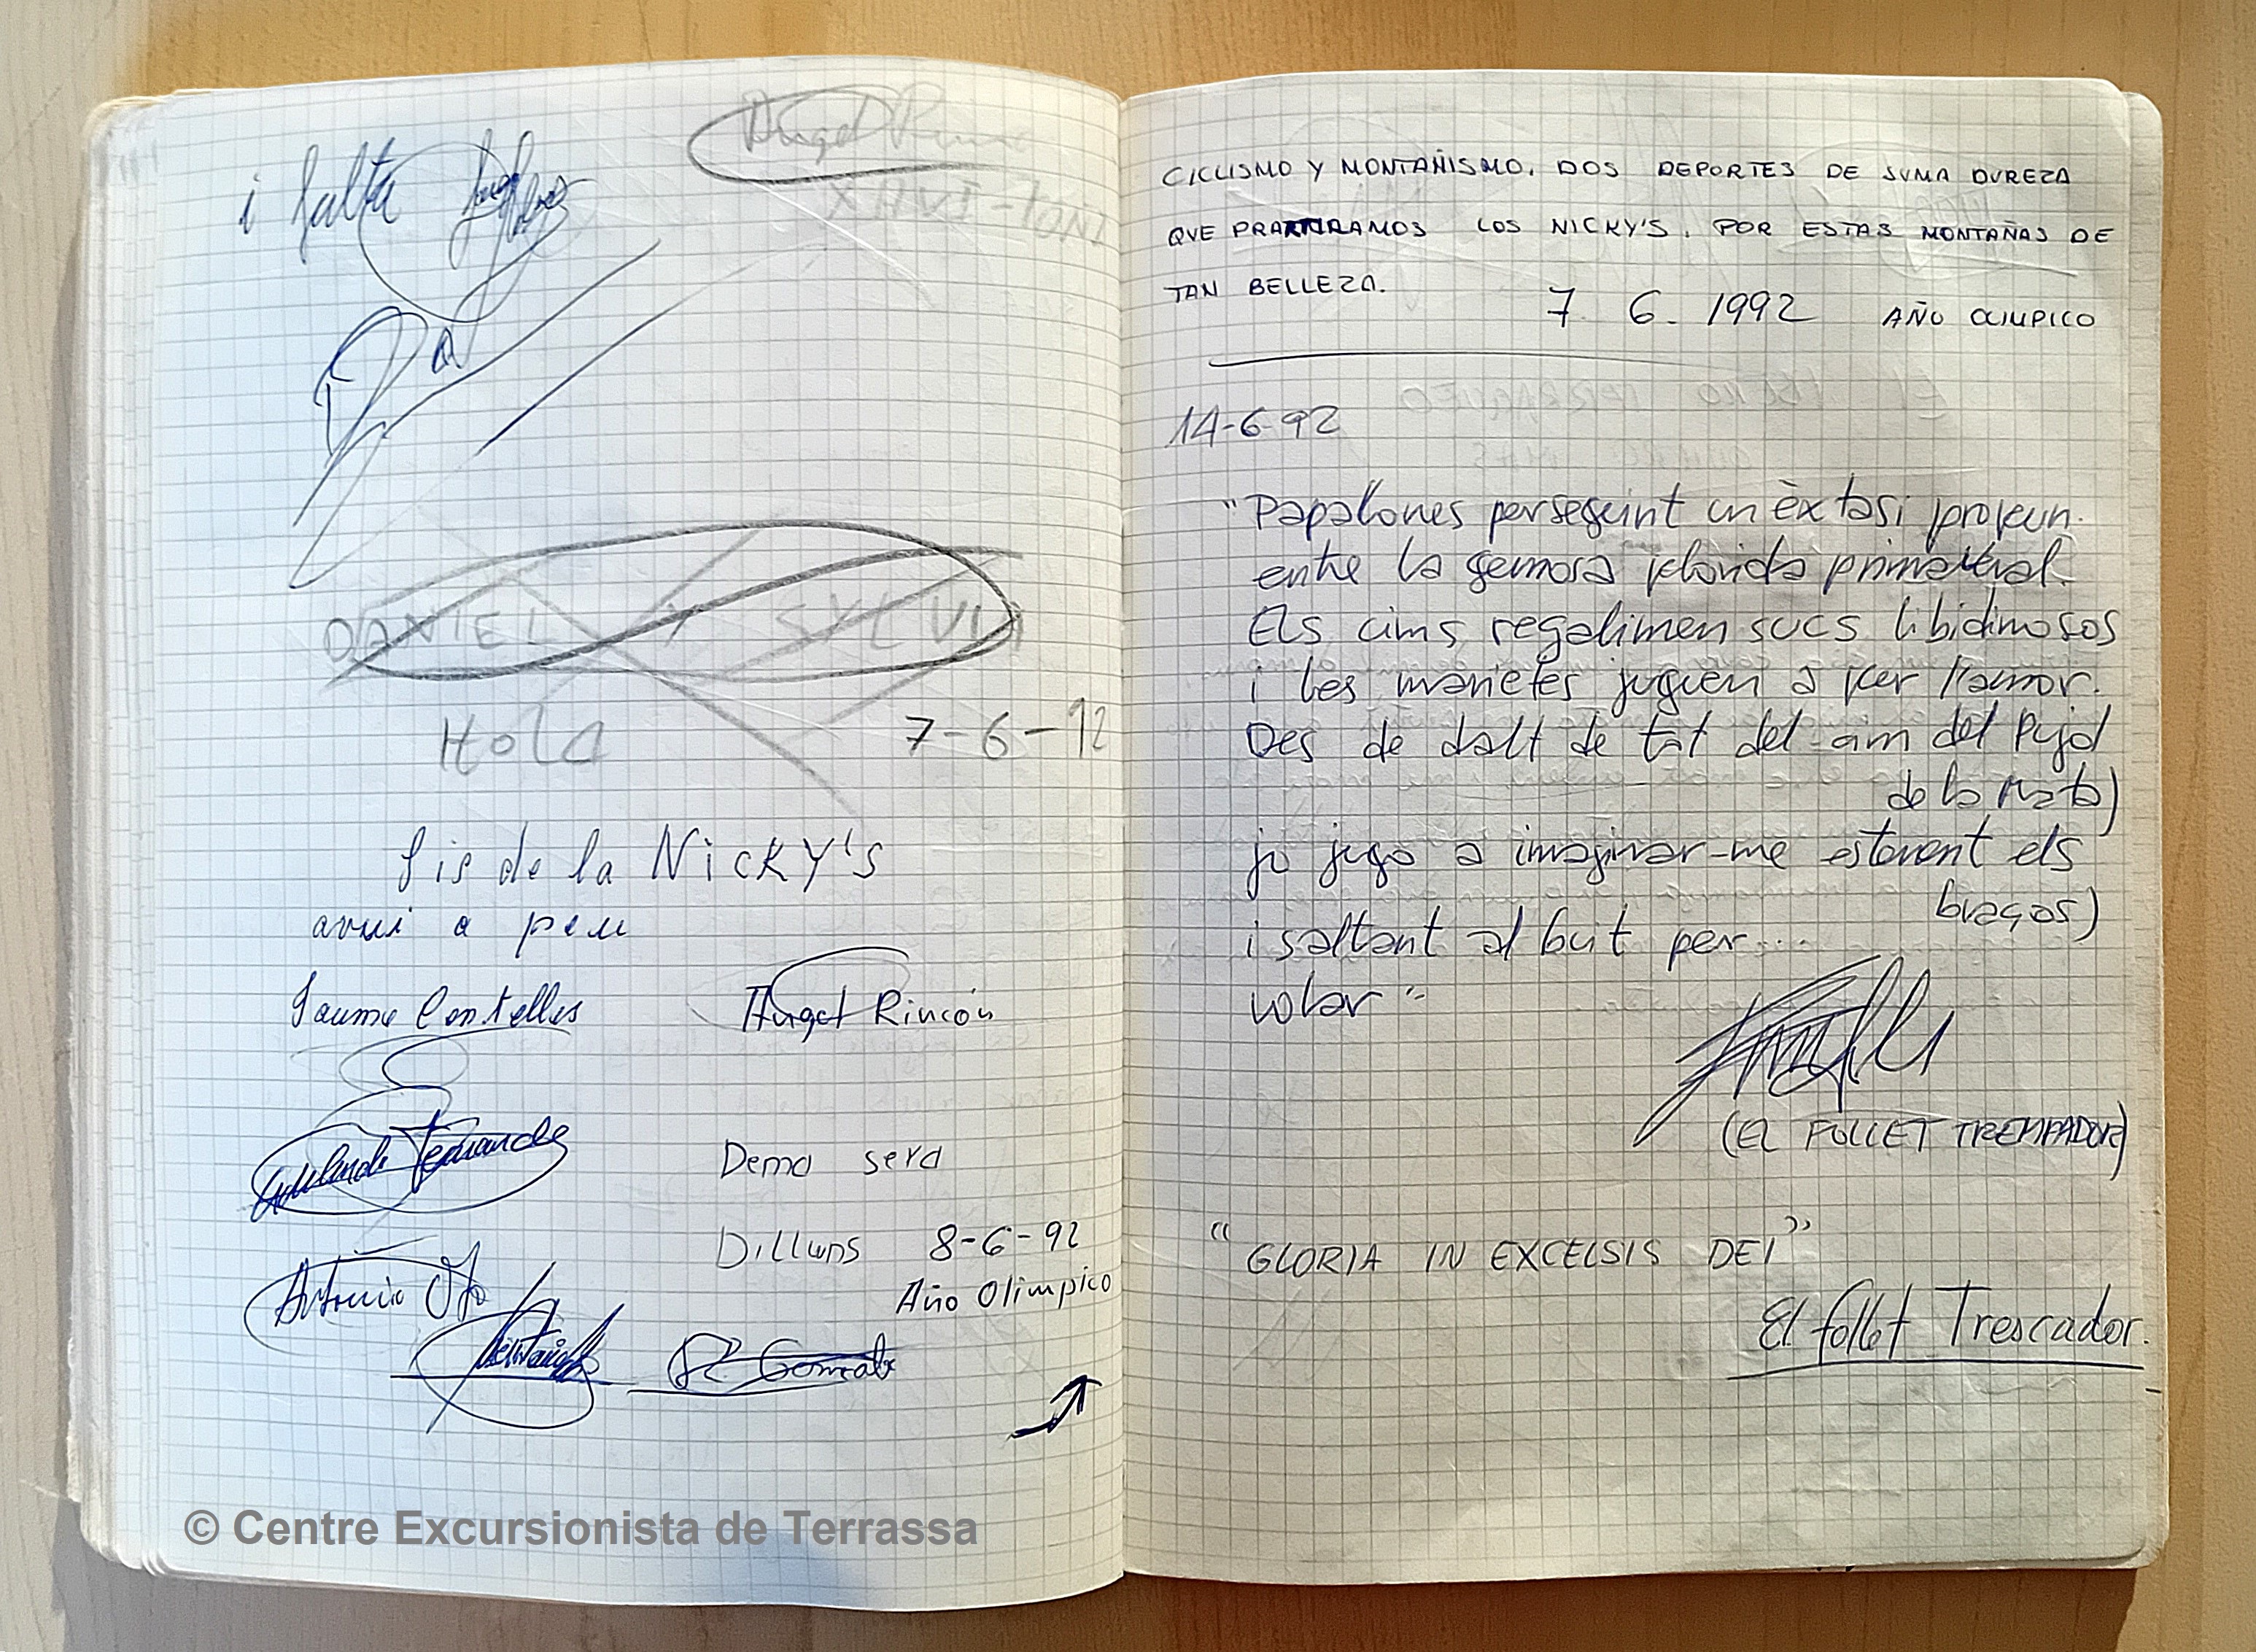 i falta
DANIEL Y SYLVIA
Hola 7-6-92
Sis de la Nicky's
avui a peu
Jaume Centelles
Angel Rincón
Fernandez
Demà serà
Dilluns 8-6-92
Año Olimpico
Antonio
© Centre Excursionista de Terrassa
CICLISMO Y MONTAÑISMO. DOS DEPORTES DE SUMA DUREZA
QUE LOS NICKY'S. POR ESTAS MONTAÑAS DE
TAN BELLEZA.
7. 6. 1992 AÑO OLIMPICO
14-6-92
"Papallones perseguint un èxtasi profun.
entre la gemosa florida primaveral.
Els cims regalimen sucs libidinosos
i les marietes juguen a fer l'amor.
Des de dalt de tot del cim del Pujol
de la Mata)
jo jugo a imaginar-me estavent els
braços)
i saltant al buit per...
volar"
(EL FOLLET TREMPADOR)
"GLORIA IN EXCELSIS DEI"
El follet Trescador.